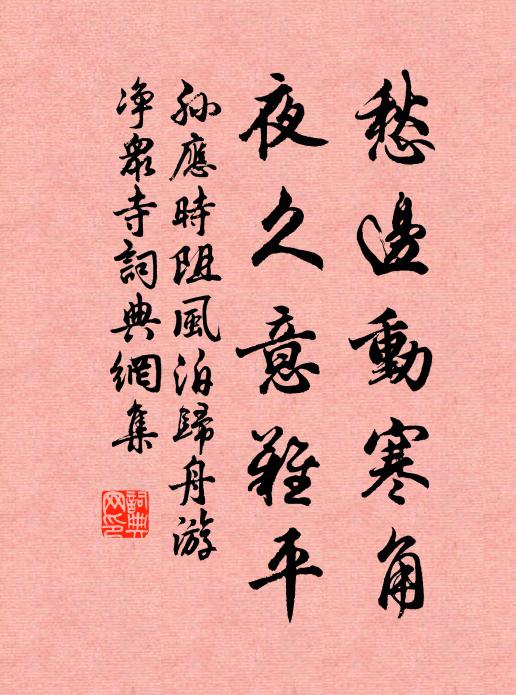 愁邊動寒角
夜久意難平
孫應時阻風泊歸舟游
净眾寺詞典網集
詞典網印